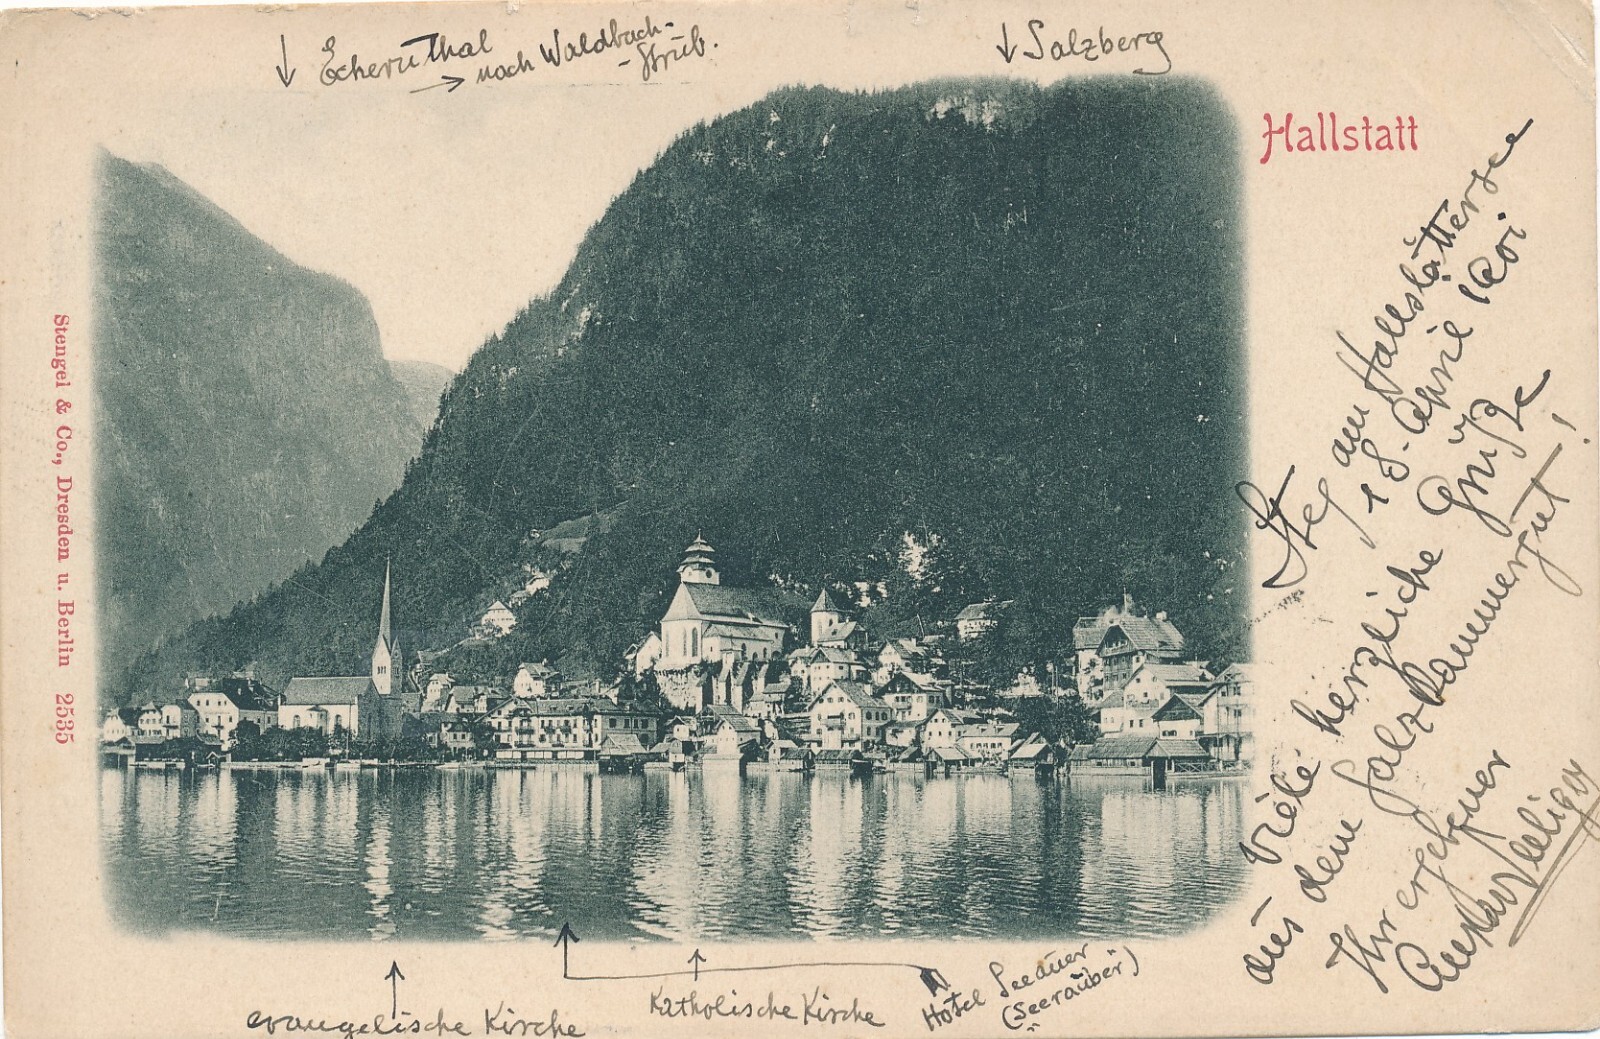 ↓ Echernthal
→ nach Waldbach-
-Strub.
↓ Salzberg
Hallstatt
Stengel & Co., Dresden u. Berlin 2535
Steg am Hallstättersee
18. April 1901
Viele herzliche Grüße
aus dem Salzkammergut!
Ihr ergebener
evangelische Kirche
Katholische Kirche
Hotel Seeauer
(Seeräuber)